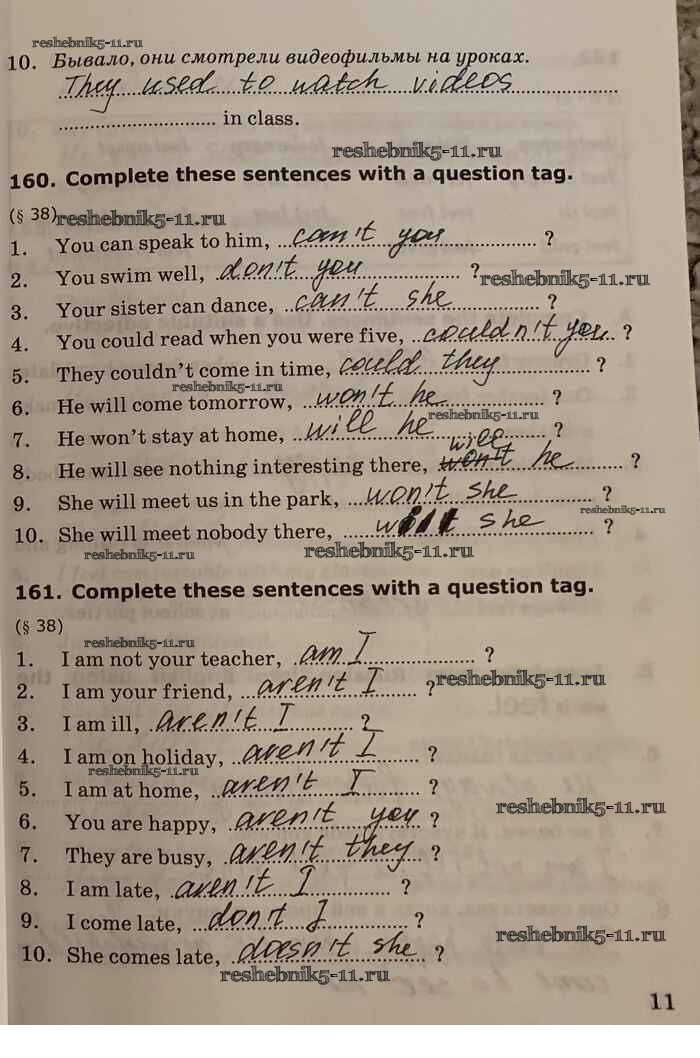 reshebnik5-11.ru
10. Бывало, они смотрели видеофильмы на уроках.
They used to watch videos
in class.
reshebnik5-11.ru
160. Complete these sentences with a question tag.
(§ 38) reshebnik5-11.ru
1. You can speak to him, can't you ?
2. You swim well, don't you ? reshebnik5-11.ru
3. Your sister can dance, can't she ?
4. You could read when you were five, couldn't you ?
5. They couldn't come in time, could they ?
reshebnik5-11.ru
6. He will come tomorrow, won't he ?
reshebnik5-11.ru
7. He won't stay at home, will he ?
will
8. He will see nothing interesting there, won't he ?
9. She will meet us in the park, won't she ?
reshebnik5-11.ru
10. She will meet nobody there, will she ?
reshebnik5-11.ru reshebnik5-11.ru
161. Complete these sentences with a question tag.
(§ 38)
reshebnik5-11.ru
1. I am not your teacher, am I ?
2. I am your friend, aren't I ? reshebnik5-11.ru
3. I am ill, aren't I ?
4. I am on holiday, aren't I ?
reshebnik5-11.ru
5. I am at home, aren't I ?
reshebnik5-11.ru
6. You are happy, aren't you ?
7. They are busy, aren't they ?
8. I am late, aren't I ?
9. I come late, don't I ?
reshebnik5-11.ru
10. She comes late, doesn't she ?
reshebnik5-11.ru
11